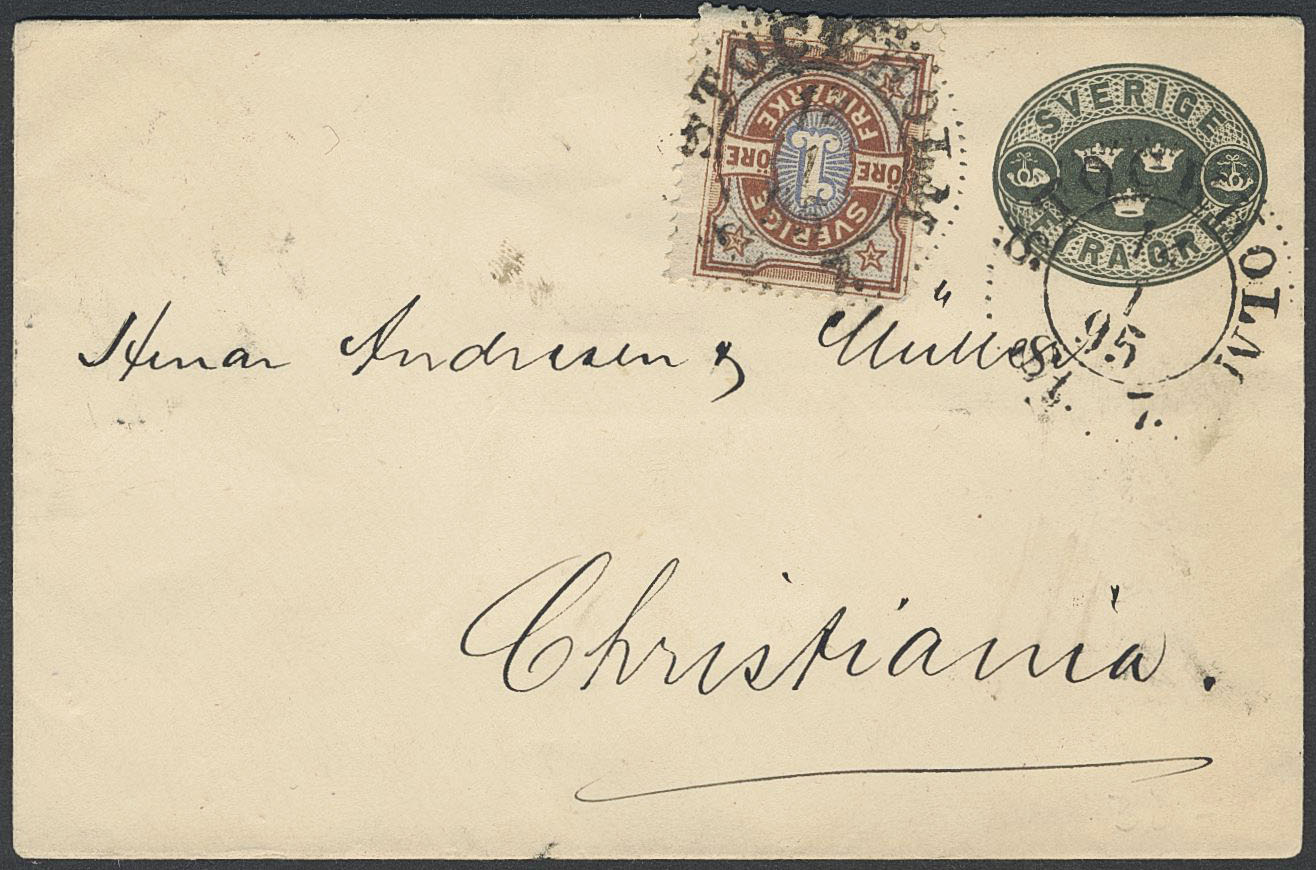 STOCKHOLM
SVERIGE FRIMERKE
ÖRE ÖRE
1
SVERIGE
FYRA ÖRE
STOCKHOLM
1
1
95
Herrar Andresen & Müller
Christiania.